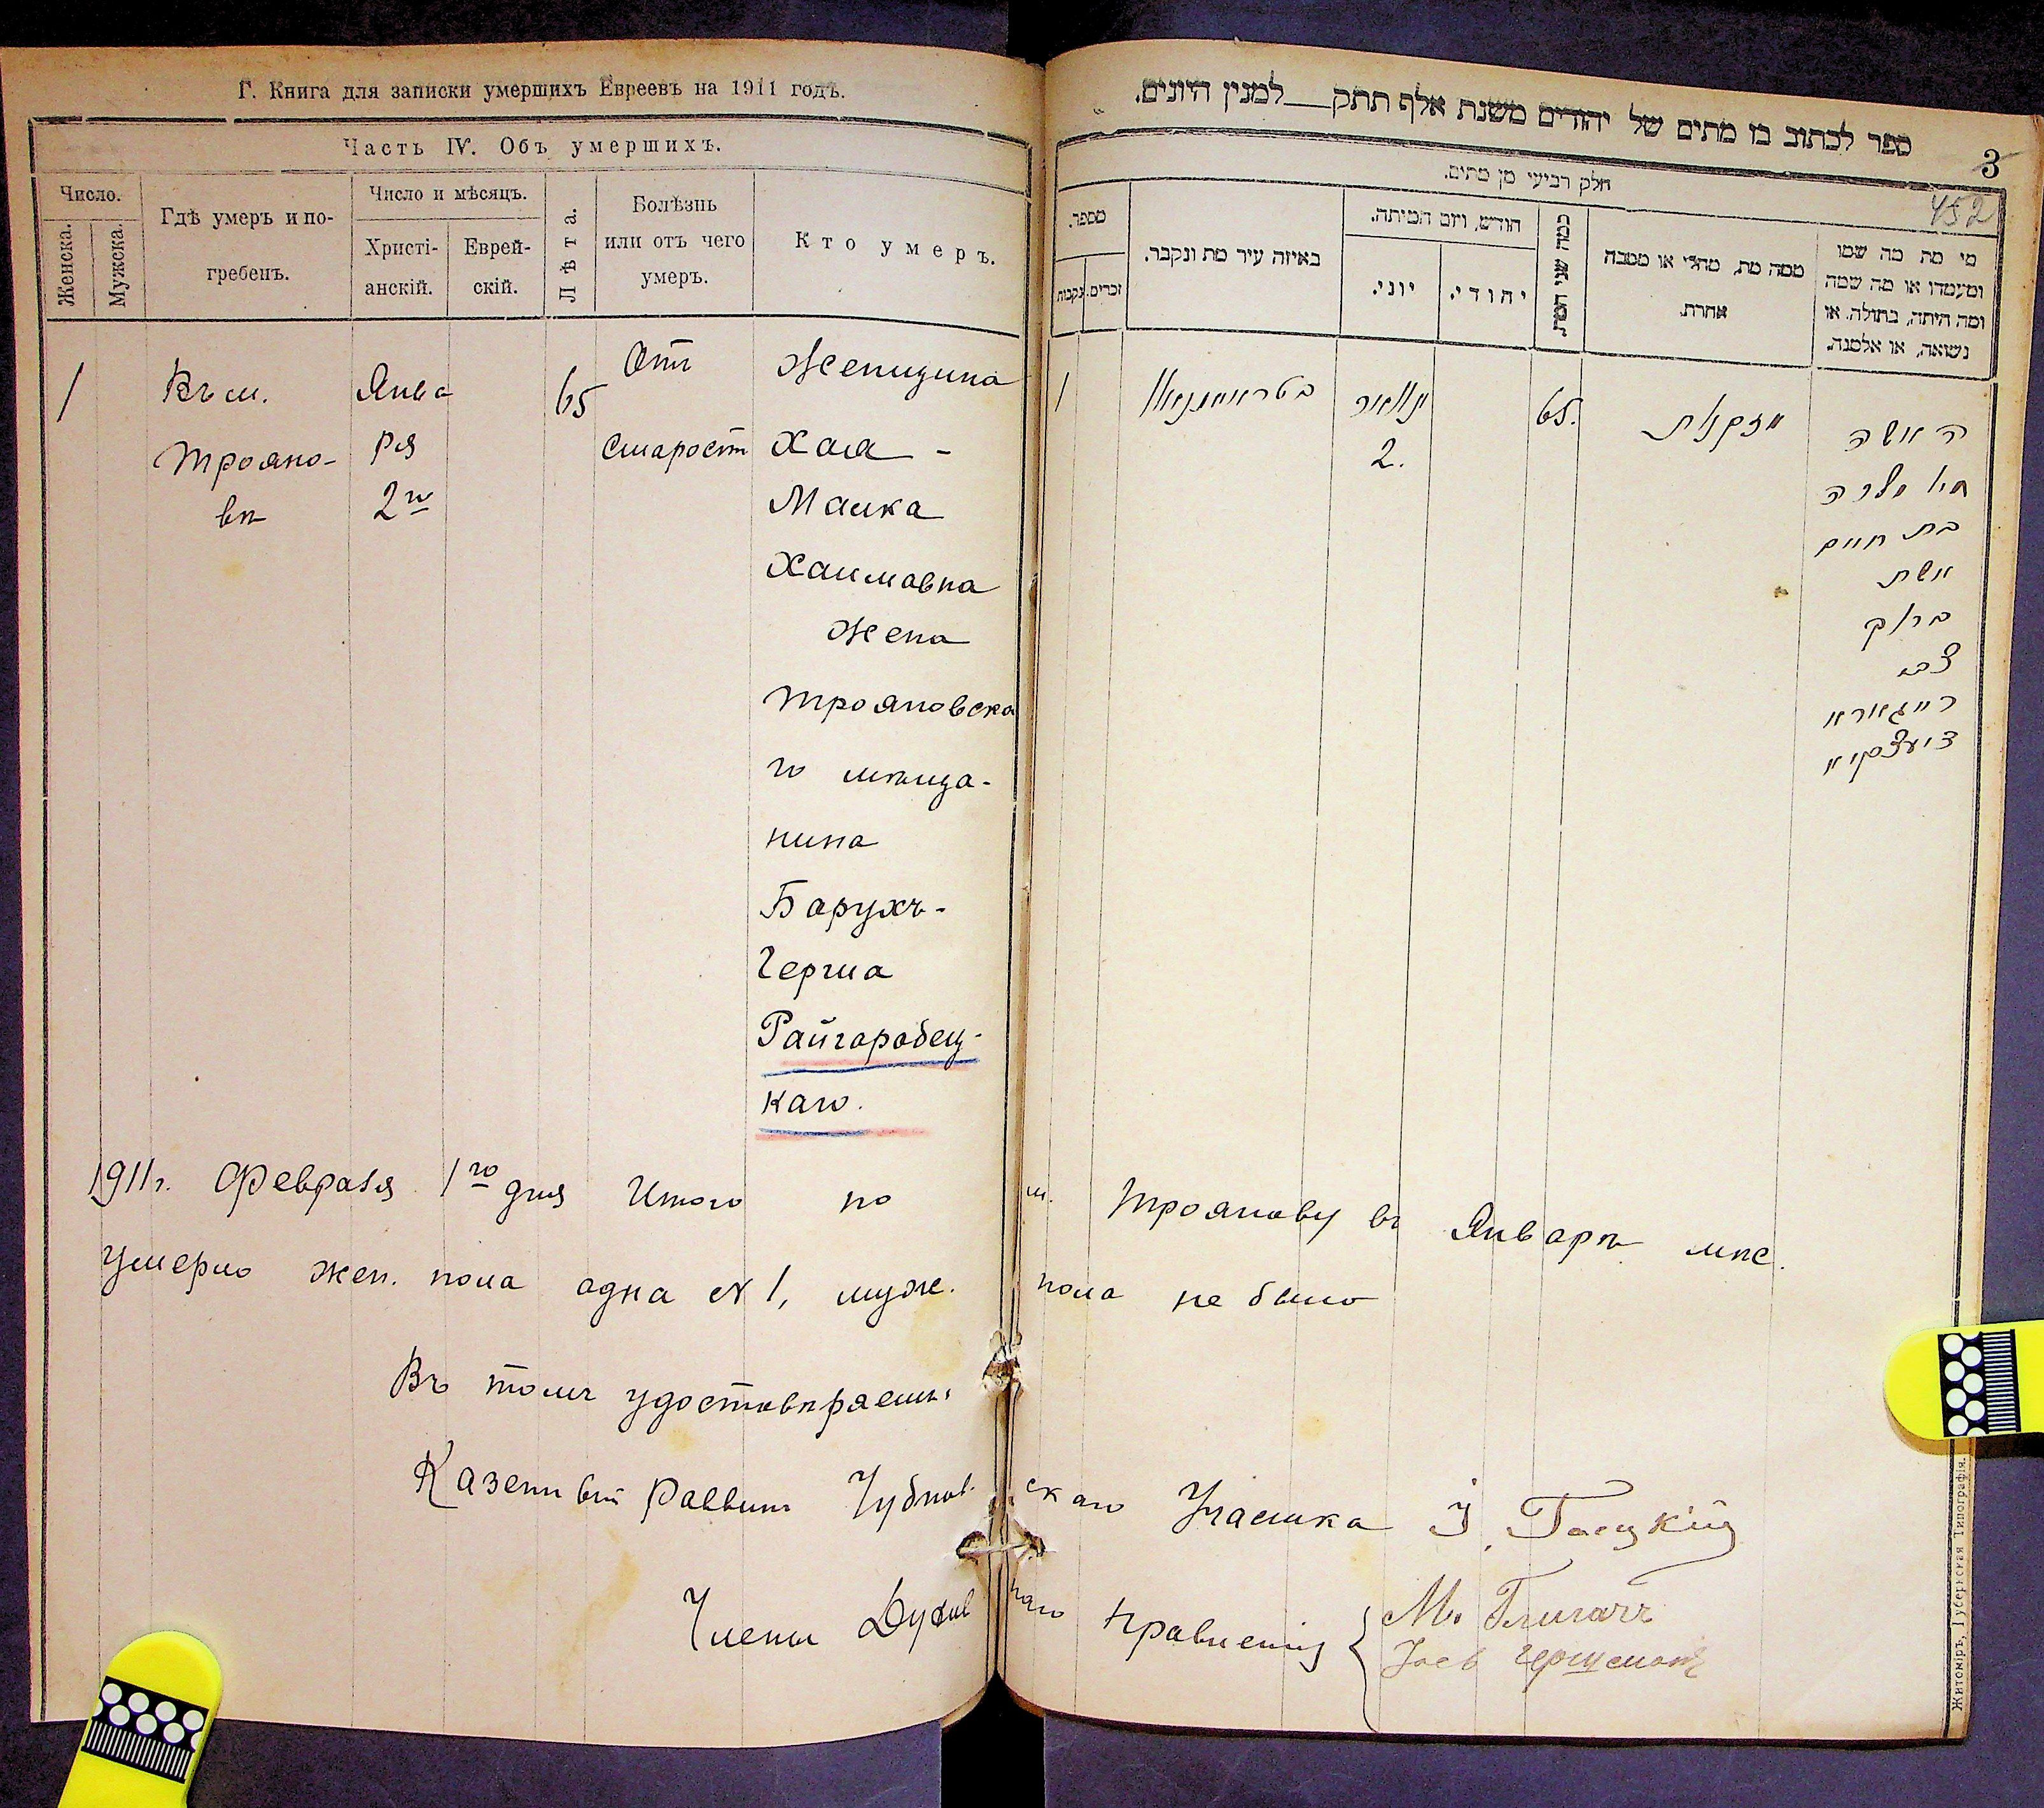 Г. Книга для записки умершихъ Евреевъ на 1911 годъ.
Часть IV. Объ умершихъ.
Число.
Женска.
Мужска.
Гдѣ умеръ и по-
гребенъ.
Число и мѣсяцъ.
Христі-
анскій.
Еврей-
скій.
Лѣта.
Болѣзнь
или отъ чего
умеръ.
Кто умеръ.
1
Въ м.
Трояно-
вѣ
Янва
ря
2го
65
Отъ
старост
Женщина
Хая -
Малка
Хаимовна
жена
Трояновска
го мѣща-
нина
Барухъ-
Герша
Райгородец-
каго.
ספר לכתוב בו מתים של יהודים משנת אלף תתק לממנין היונים.
3
452
חלק רביעי מן מתים.
מספר.
נקבות
זכרים.
באיזה עיר מת ונקבר.
חודש, ויום המיתה.
יוני.
יהודי.
כמה שני המת.
ממה מת, מחלי או מסבה
אחרת.
מי מת מה שמו
ומעמדו או מה שמה
ומה היתה, בתולה, או
נשואה, או אלמנה.
1
ינואר
2.
65.
מזקנות
האשה
חיה מלכה
בת חיים
אשת
ברוך
צבי
1911г. Февраля 1го дня Итого по м. Троянову въ Январѣ мѣс.
умерло жен. пола одна № 1, муж. пола не было
Въ томъ удостовѣряемъ:
Казенный раввинъ Чудновскаго участка І. Гасцкій
Члены Духовнаго правленія
Житоміръ, Губернская Типографія.